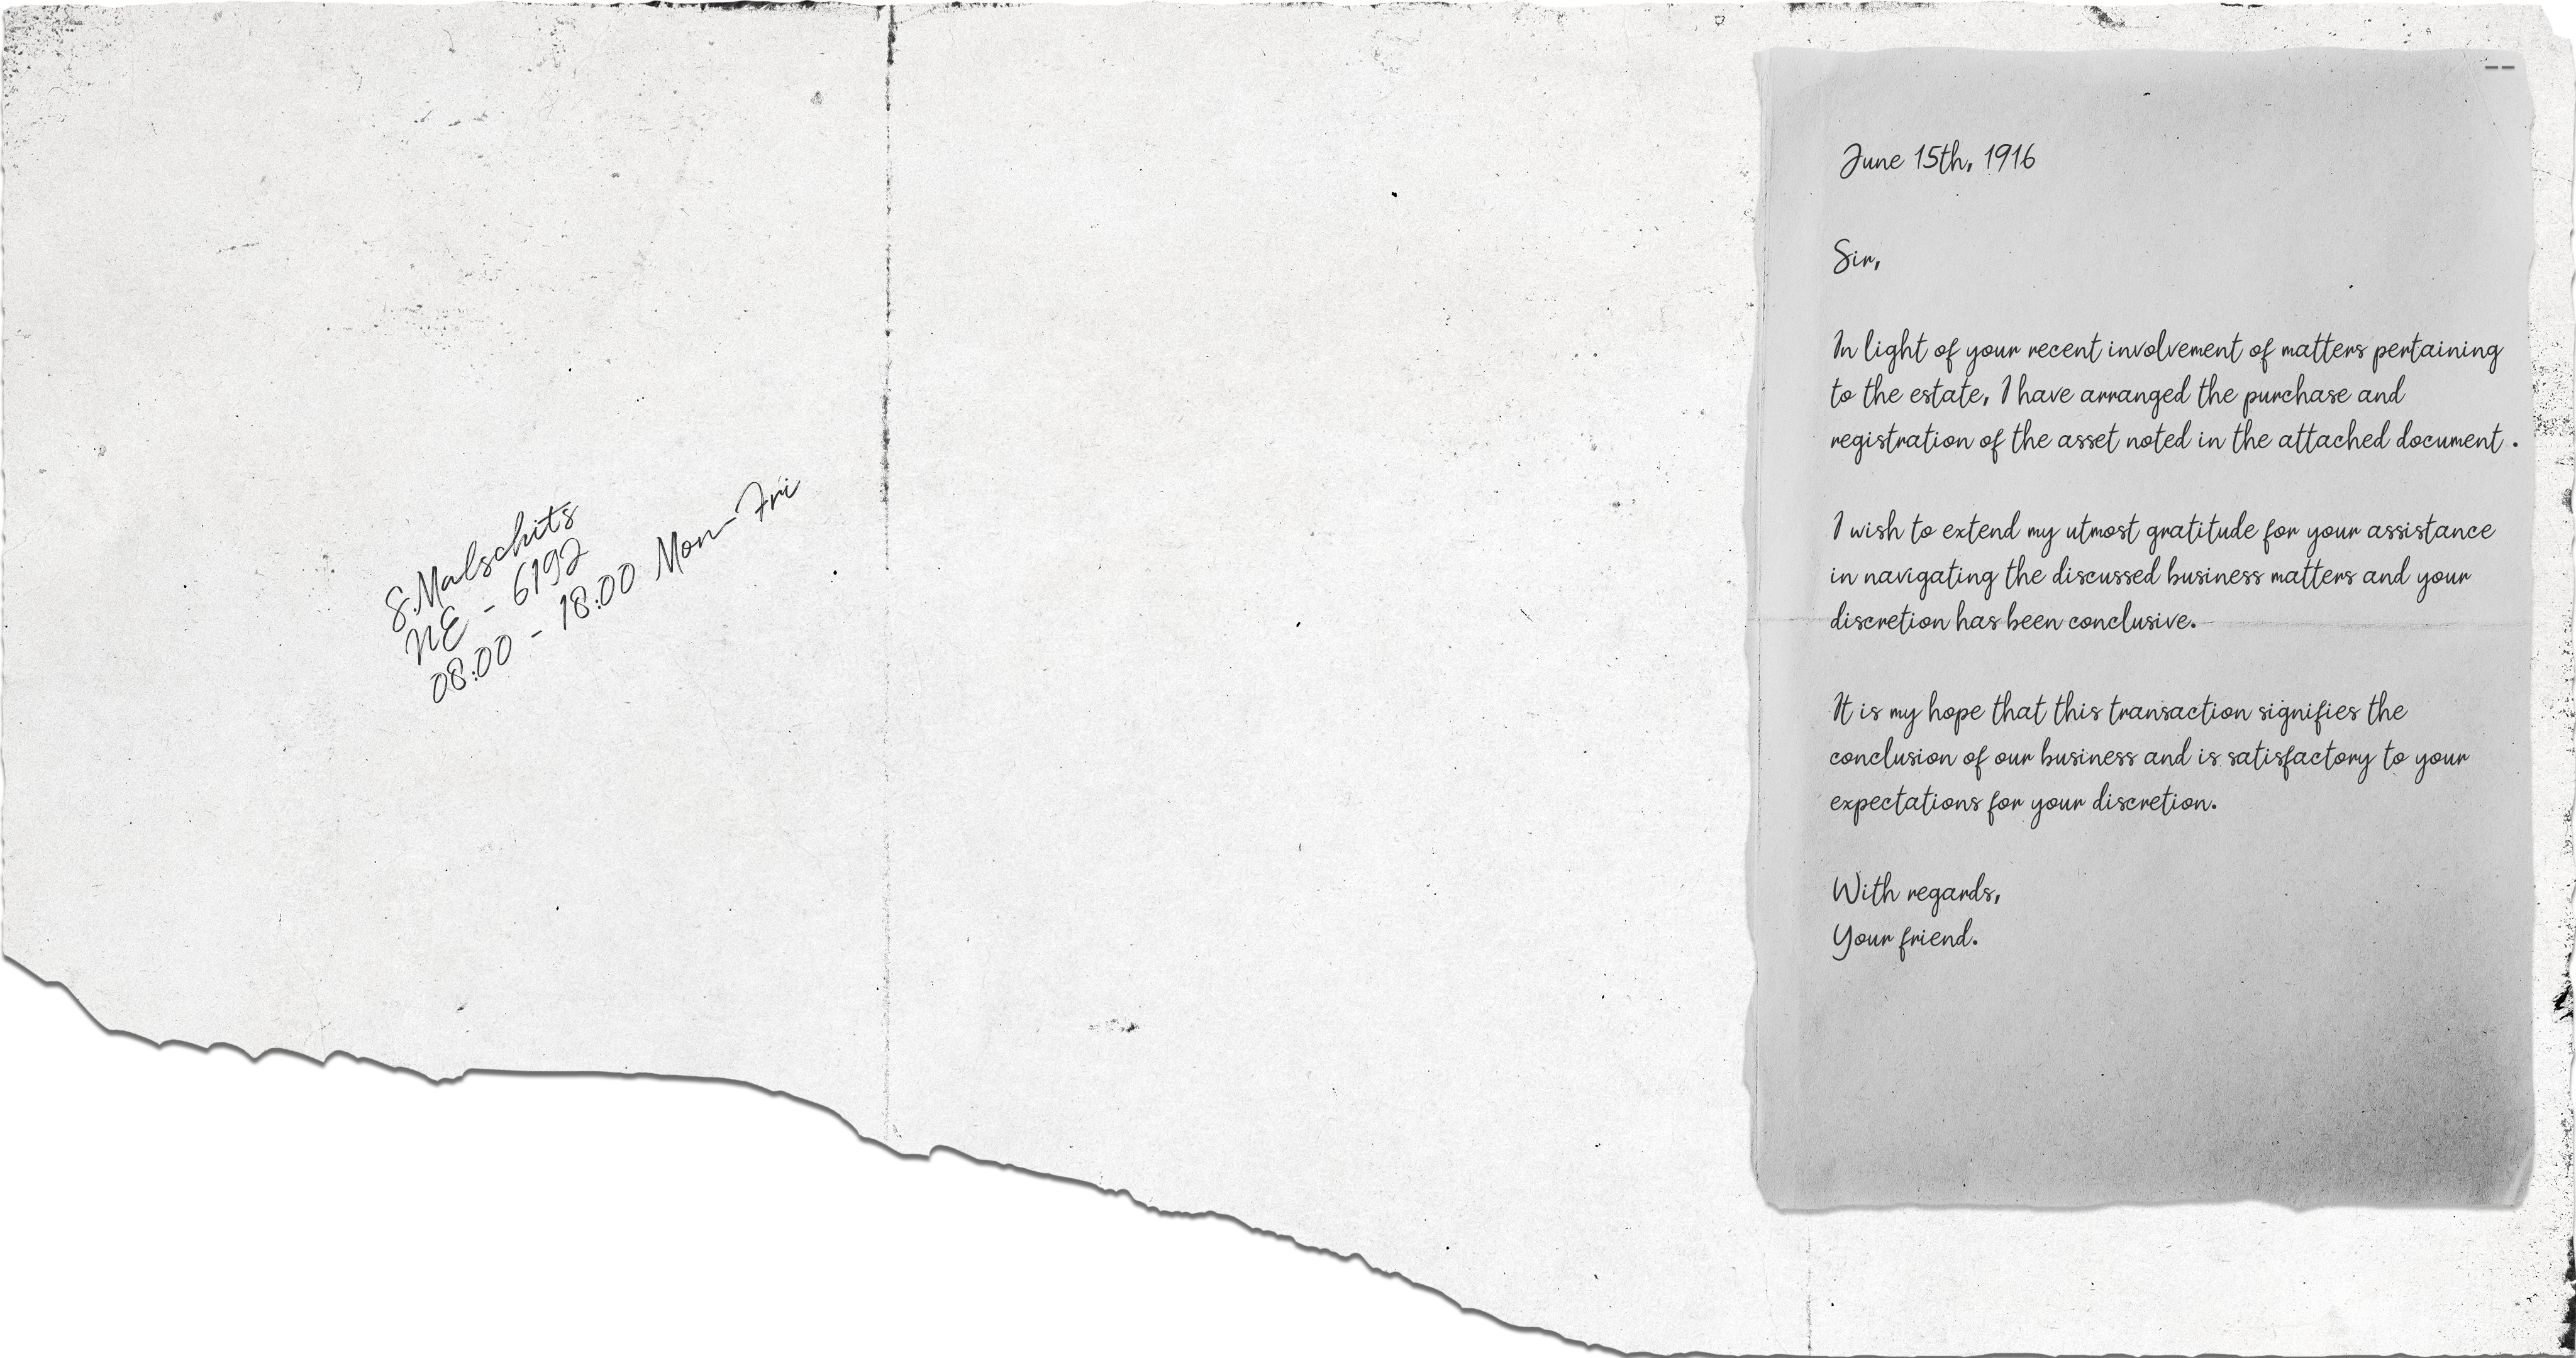 S.Malschits
NE - 6192
08:00 - 18:00 Mon-Fri
June 15th, 1916
Sir,
In light of your recent involvement of matters pertaining
to the estate, I have arranged the purchase and
registration of the asset noted in the attached document .
I wish to extend my utmost gratitude for your assistance
in navigating the discussed business matters and your
discretion has been conclusive.
It is my hope that this transaction signifies the
conclusion of our business and is satisfactory to your
expectations for your discretion.
With regards,
Your friend.